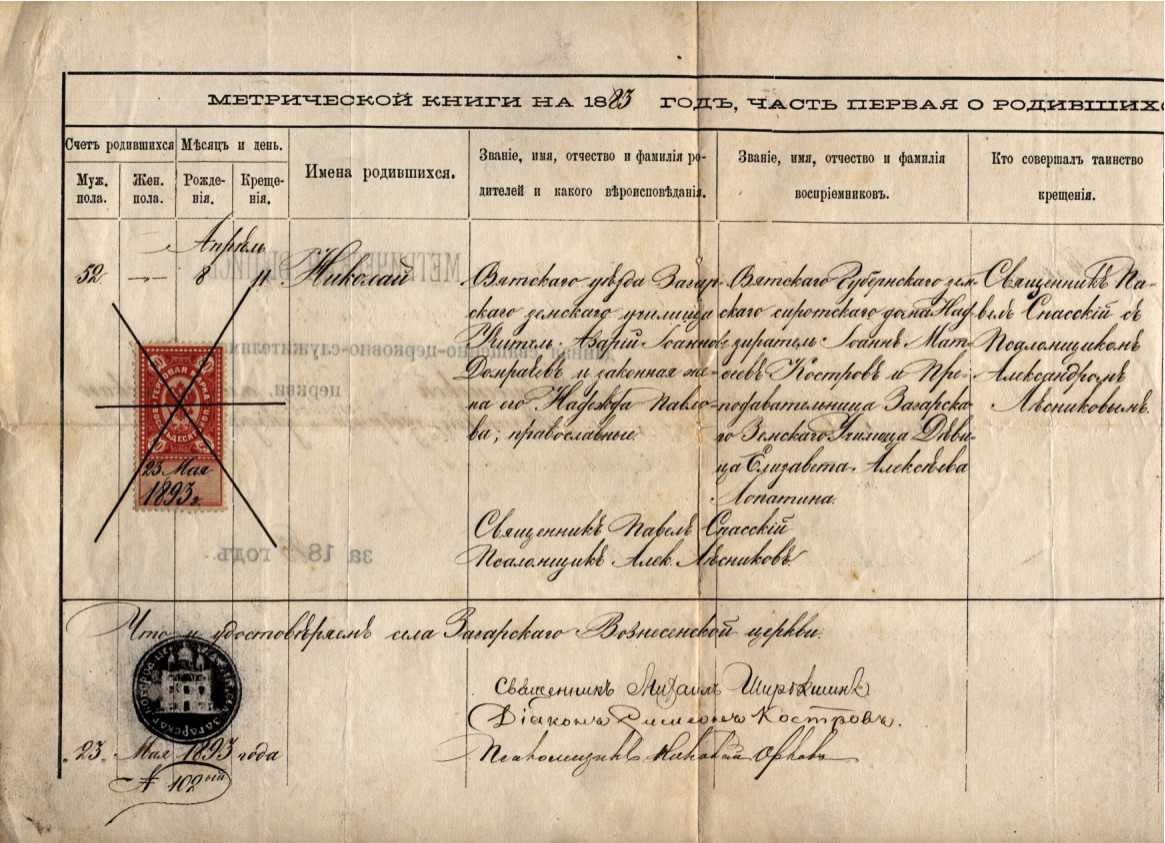 МЕТРИЧЕСКОЙ КНИГИ НА 1883 ГОДЪ, ЧАСТЬ ПЕРВАЯ О РОДИВШИХС
Счетъ родившихся
Мѣсяцъ и день.
Имена родившихся.
Званіе, имя, отчество и фамилія ро-
дителей и какого вѣроисповѣданія.
Званіе, имя, отчество и фамилія
воспріемниковъ.
Кто совершалъ таинство
крещенія.
Муж.
пола.
Жен.
пола.
Рожде-
нія.
Креще-
нія.
Апрѣль
52
8
11
Николай
Вятскаго уѣзда Загар-
скаго земскаго училища
Учитель Азарій Іоанновъ
Домрачевъ и законная же-
на его Надежда Павло-
ва; православные.
Вятскаго Губернскаго зем-
скаго сиротскаго дома Над-
зиратель Іоаннъ Мат-
ѳеевъ Костровъ и Пре-
подавательница Загарска-
го Земскаго Училища Дѣви-
ца Елизавета Алексѣева
Лопатина.
Священникъ Па-
велъ Спасскій съ
Псаломщикомъ
Александромъ
Лѣсниковымъ.
ГЕРБОВАЯ МАРКА
23 Мая
1893 г.
Священникъ Павелъ Спасскій
Псаломщикъ Алек. Лѣсниковъ.
за 18 годъ
церкви
Что и удостовѣряемъ села Загарскаго Вознесенской церкви:
Священникъ Михаилъ
Діаконъ Симеонъ Костровъ.
Псаломщикъ Николай
23 Мая 1893 года
№ 102ой